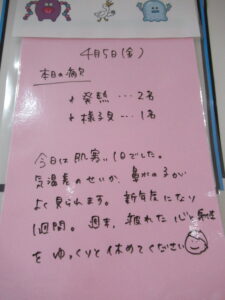 4月5日(金)
本日の病欠
↓ 発熱 … 2名
↓ 様子見 … 1名
今日は肌寒い1日でした。
気温差のせいか、鼻水の子が
よく見られます。新年度になり
1週間。週末、疲れた心と身体
をゆっくりと休めてください